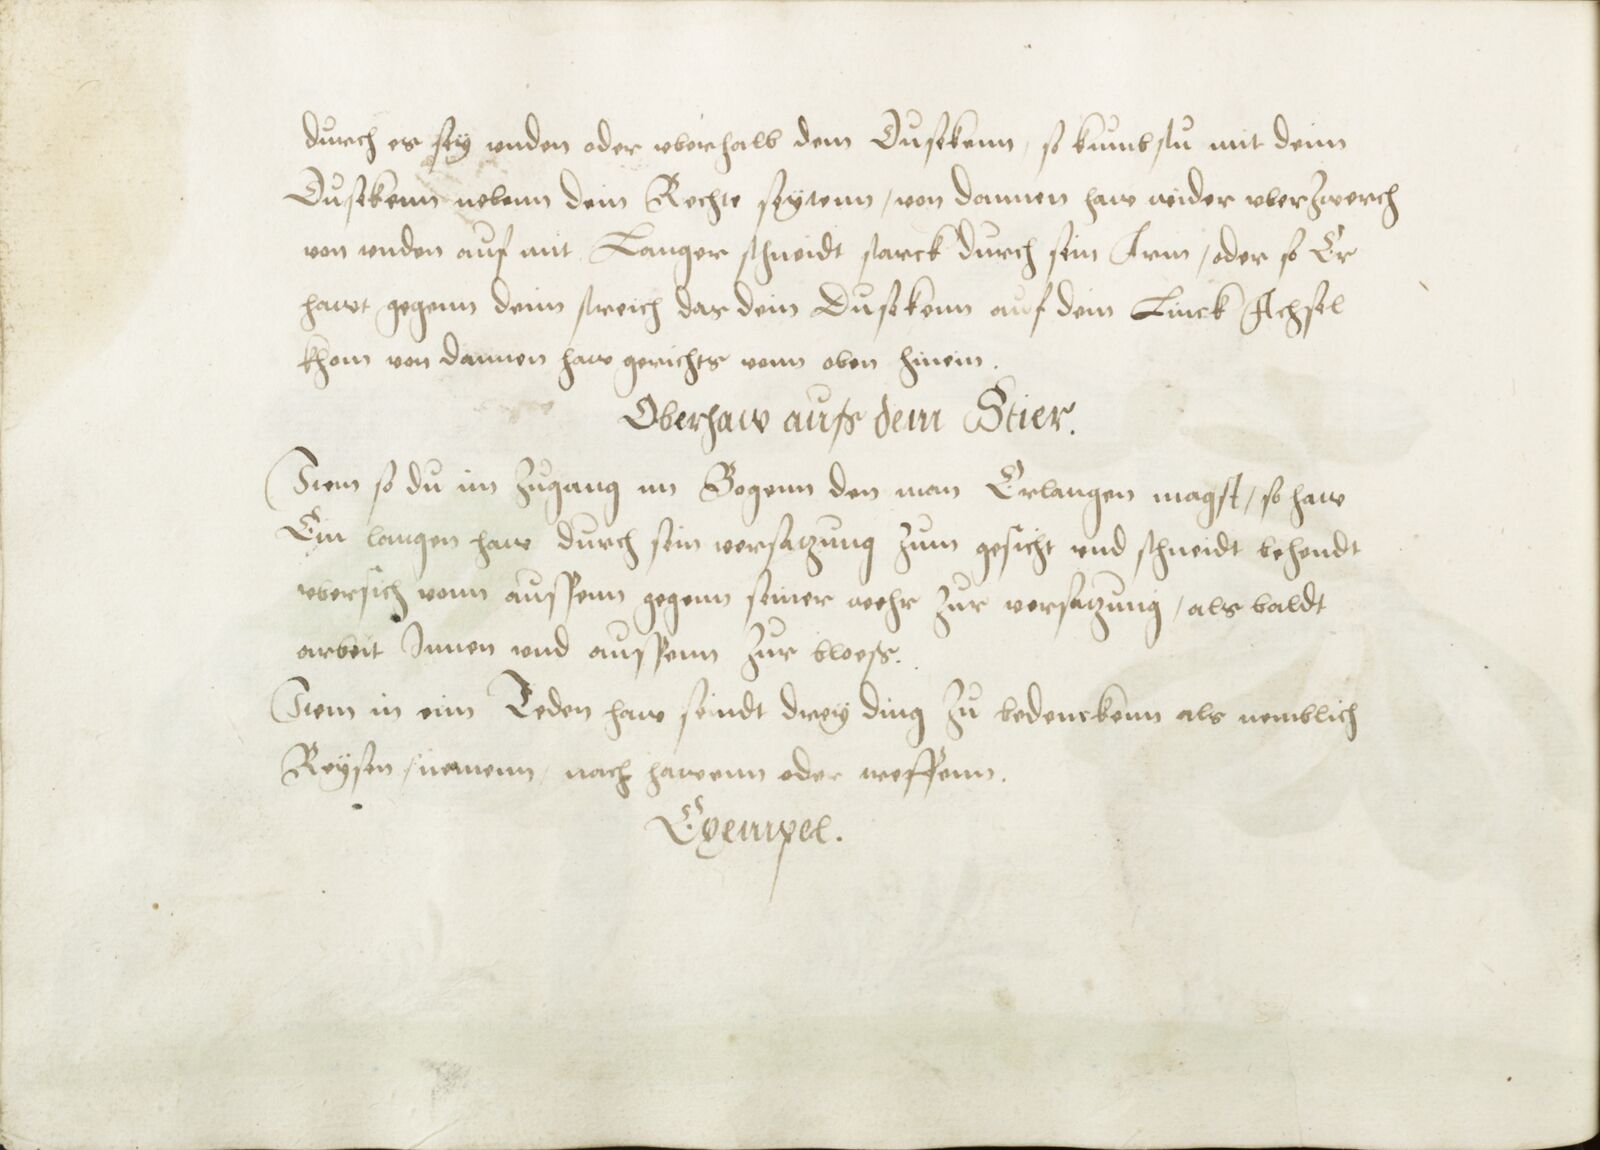 durch es seÿ unden oder uberhalb dem Dusekenn, so kumbstu mit deim
Dusekenn nebenn dein Rechte seÿtenn, von dannen haw wider uberzwerch
von unden auf mit Langer schneidt starck durch sein Arm, oder so Er
hawt gegenn deim streich das dein Dusekenn auf dein Linck Achsel
khom von dannen haw gerichts vonn oben hinein.
Oberhaw aufs dem Stier.
Item so du im Zugang im Bogenn den man Erlangen magst, so haw
Ein langen haw durch sein versatzung zum gesicht und schneidt behendt
ubersich vonn aussenn gegenn seiner wehr zur versatzung, als baldt
arbeit Innen und aussenn zur bloess.
Item in eim Jeden haw seindt dreÿ ding zu bedenckenn als nemblich
Reÿsen, nemenn, nach hawenn oder treffenn.
Exempel.